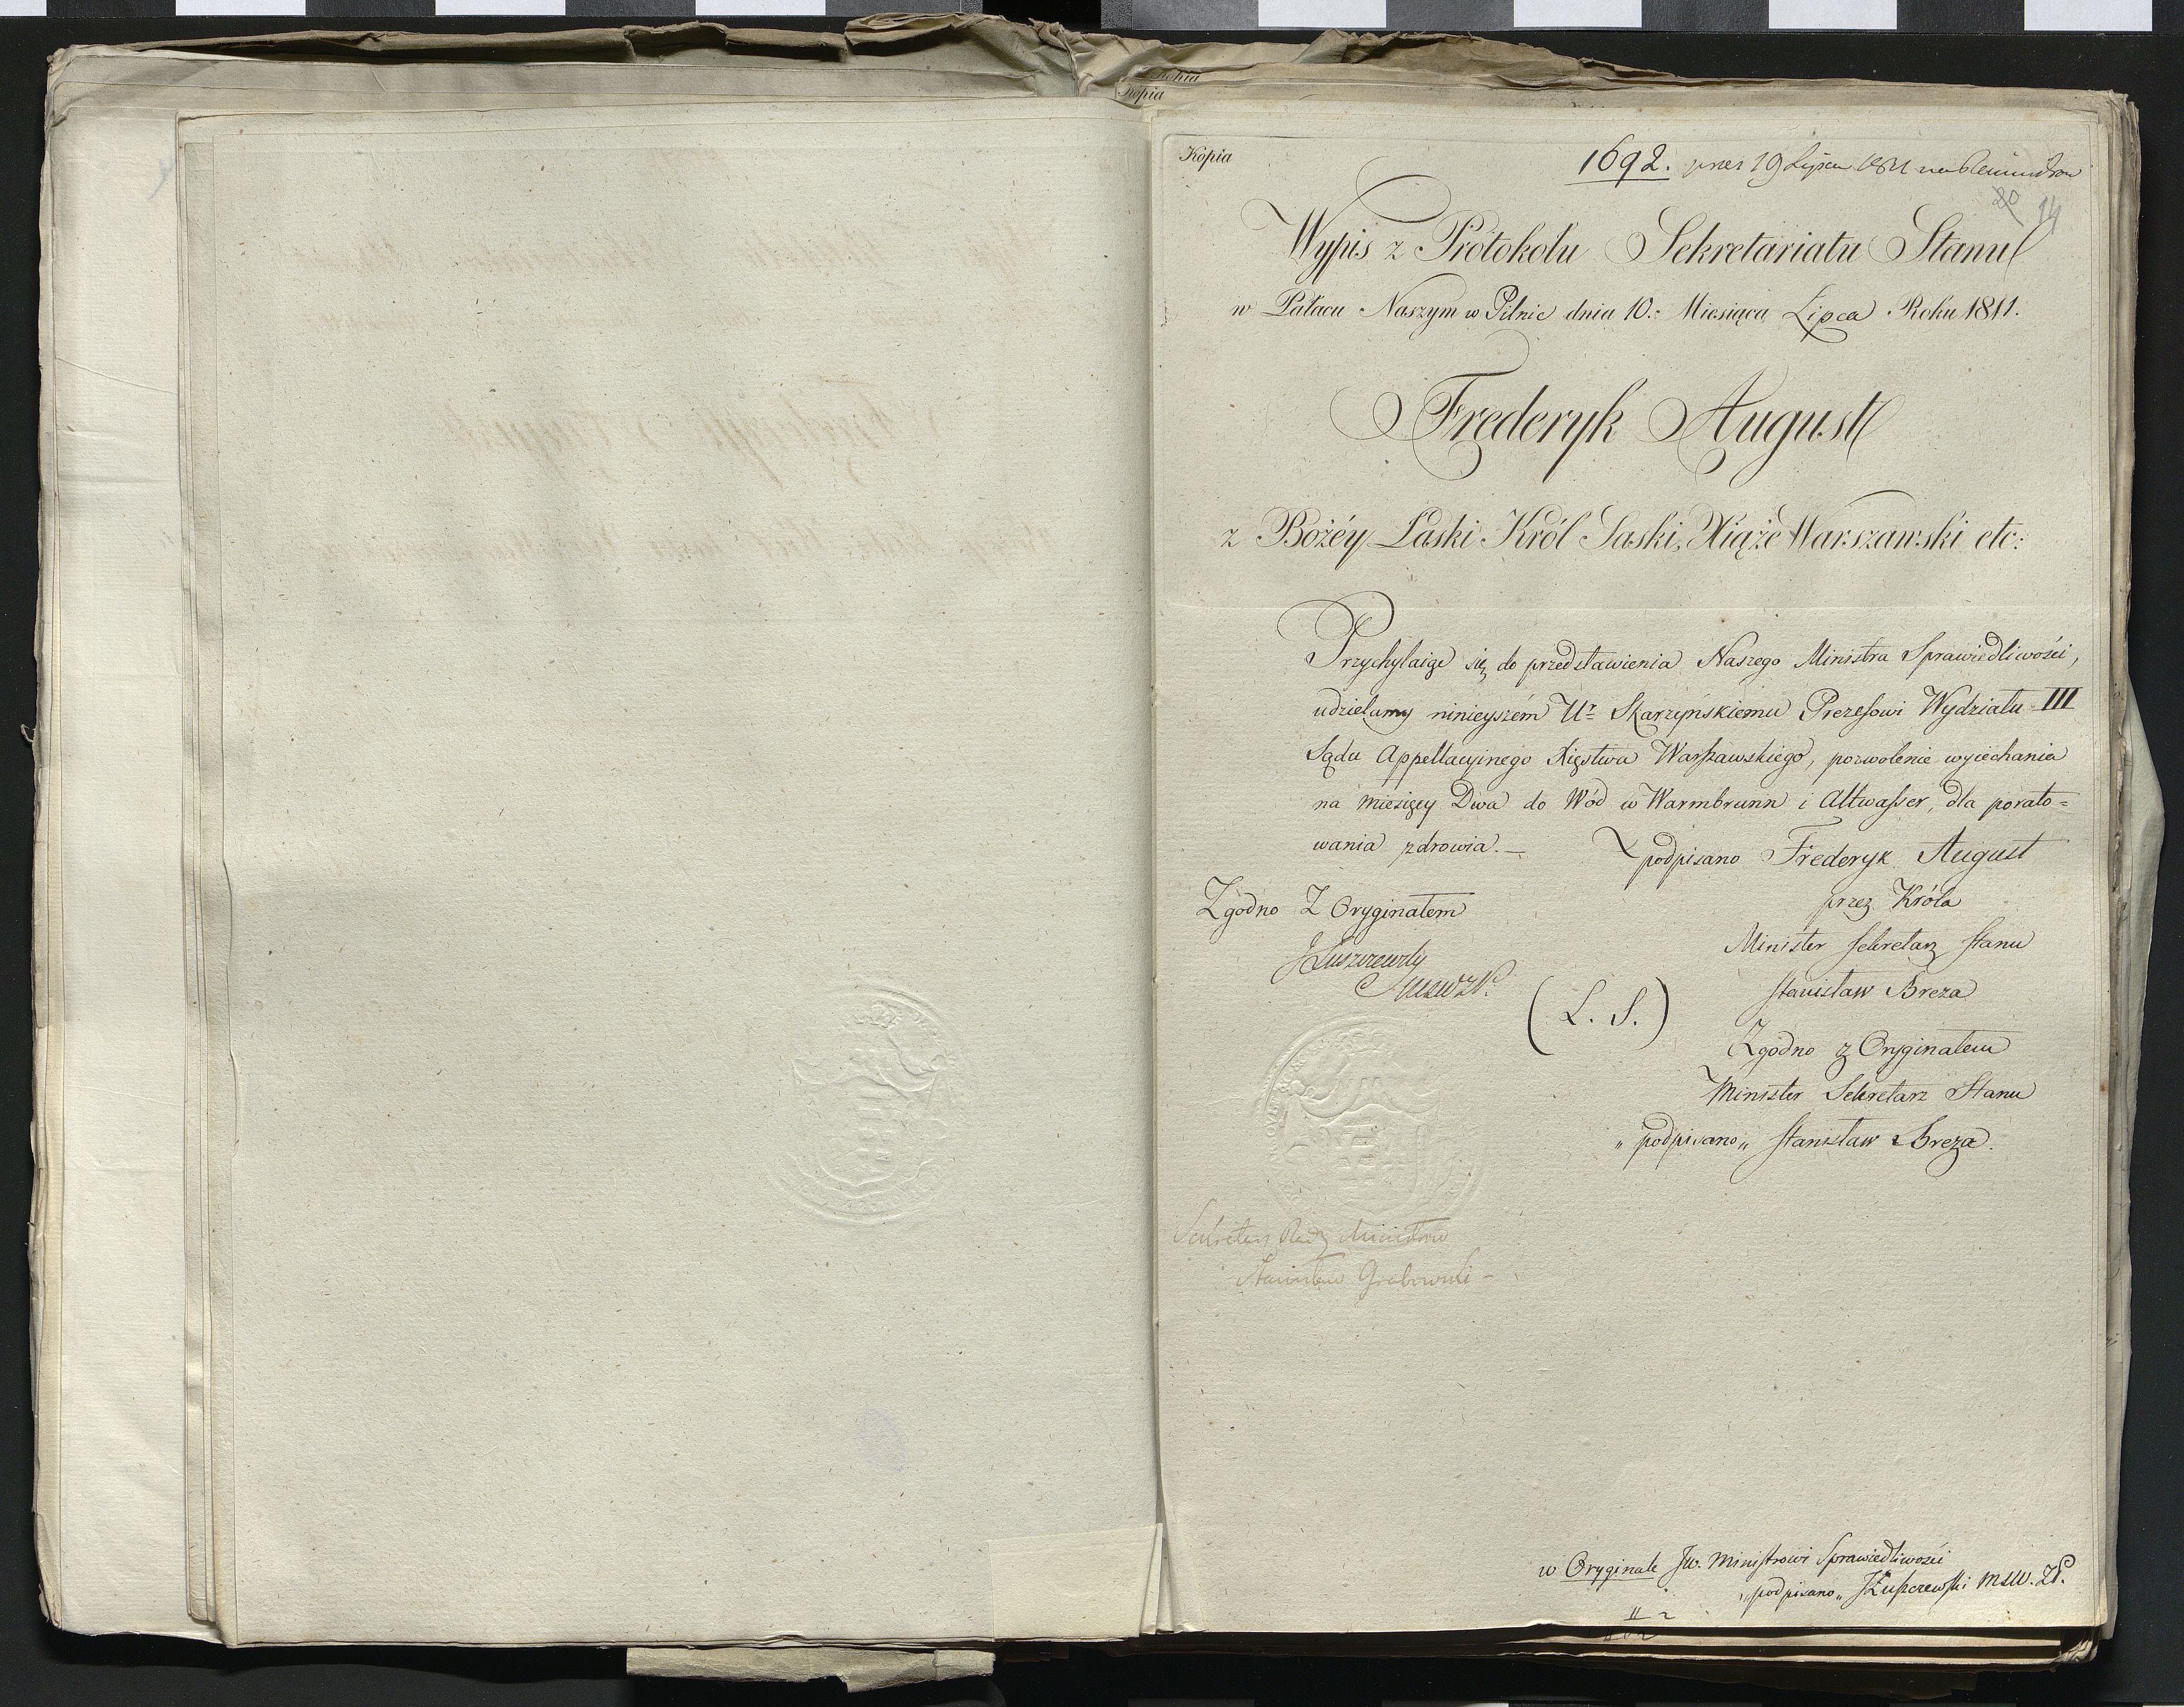 Kopia
Kopia
Kopia
1692. 19 Lipca 1811
20 14
Wypis z Protokołu Sekretariatu Stanu
w Pałacu Naszym w Pilnic dnia 10. Miesiąca Lipca Roku 1811.
Frederyk August
z Bożéy Łaski Król Saski, Xiąże Warszawski etc:
Przychylaiąc się do przedstawienia Naszego Ministra Sprawiedliwości,
udzielamy ninieyszém Ur Skarzyńskiemu Prezesowi Wydziału III
Sądu Appellacyinego Xięstwa Warszawskiego, pozwolenie wyiechania
na miesięcy Dwa do Wód w Warmbrunn i Altwasser, dla porato=
wania zdrowia.—
podpisano Frederyk August
przez Króla
Minister Sekretarz Stanu
Stanisław Breza
Zgodno Z Oryginałem
JŁuszczewsky
(L. S.)
Zgodno z Oryginałem
Minister Sekretarz Stanu
„podpisano„ Stanisław Breza.
Sekretarz Rady Ministrów
Stanisław Grabowski -
w Oryginale Jw. Ministrowi Sprawiedliwości
„podpisano„ JŁuszczewski MSW. ZP.